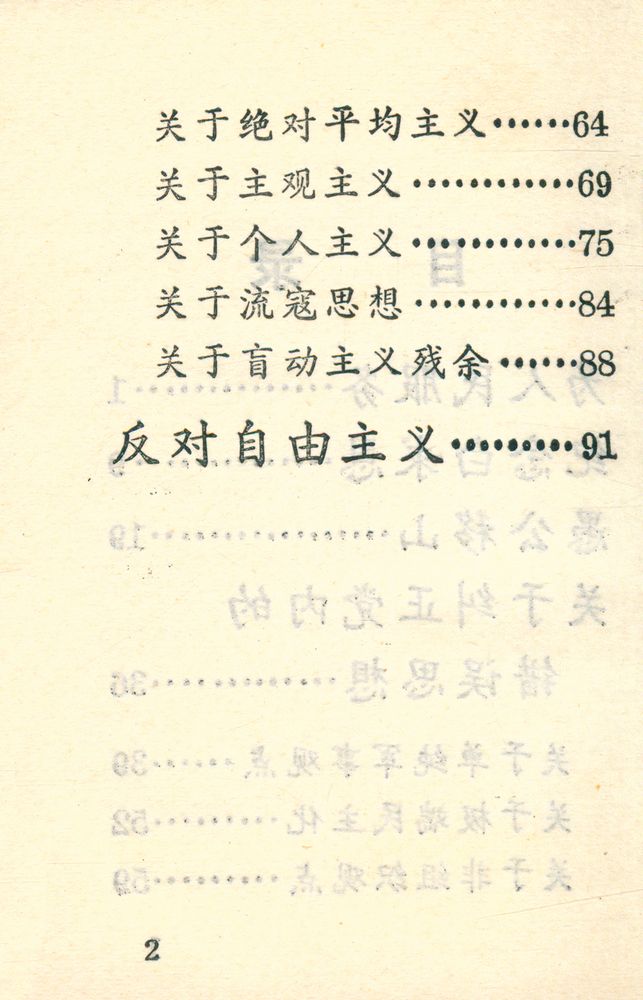 关于绝对平均主义……64
关于主观主义…………69
关于个人主义…………75
关于流寇思想…………84
关于盲动主义残余……88
反对自由主义………91
2